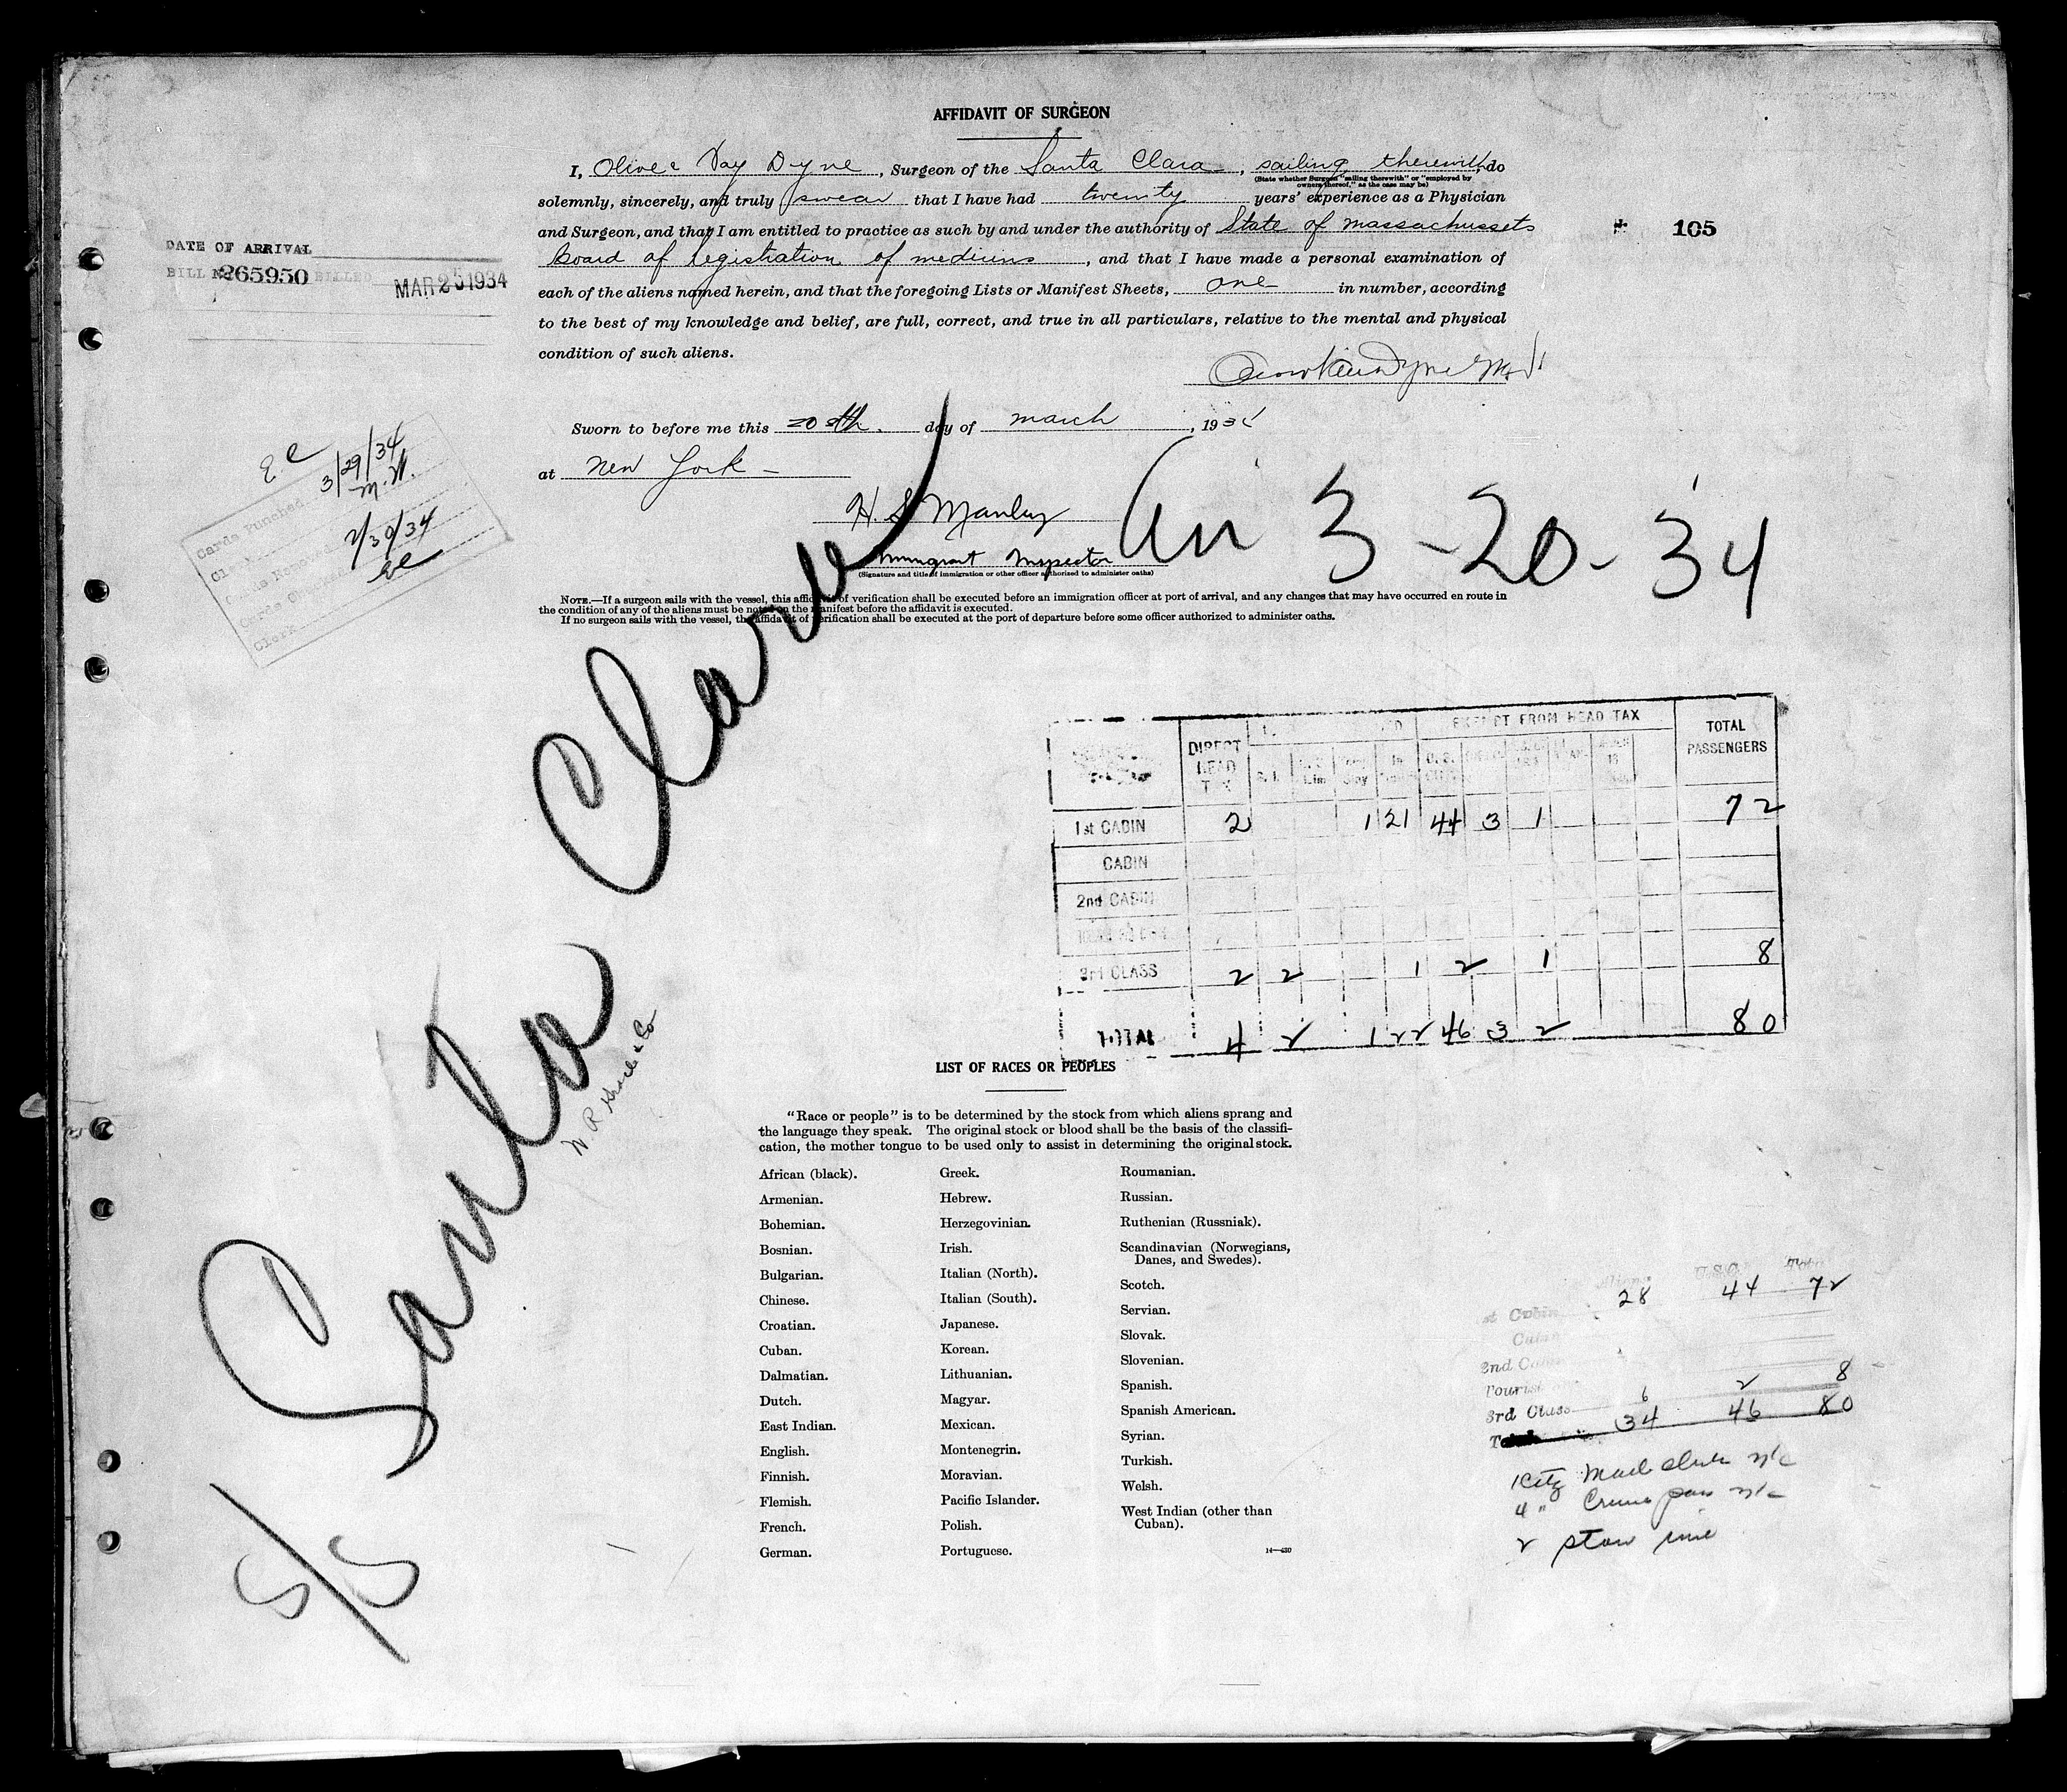 AFFIDAVIT OF SURGEON
I, Oliver Day Dyne, Surgeon of the Santa Clara, sailing therewith, do
(State whether Surgeon "sailing therewith" or "employed by
owners thereof," as the case may be)
solemnly, sincerely, and truly swear that I have had twenty years' experience as a Physician
and Surgeon, and that I am entitled to practice as such by and under the authority of State of Massachussets
Board of Registration of, and that I have made a personal examination of
each of the aliens named herein, and that the foregoing Lists or Manifest Sheets, one in number, according
to the best of my knowledge and belief, are full, correct, and true in all particulars, relative to the mental and physical
condition of such aliens.
105
DATE OF ARRIVAL
BILL No 265950 BILLED MAR 25 1934
Sworn to before me this 20th. day of march, 193
at New York -
H. S. Manley
Immigrant Inspector
(Signature and title of immigration or other officer authorized to administer oaths)
E C
Cards Punched 3/29/34
Clerk M.N.
/30/34
Clerk
3-20-34
NOTE.—If a surgeon sails with the vessel, this affidavit of verification shall be executed before an immigration officer at port of arrival, and any changes that may have occurred en route in
the condition of any of the aliens must be noted on the manifest before the affidavit is executed.
If no surgeon sails with the vessel, the affidavit of verification shall be executed at the port of departure before some officer authorized to administer oaths.
S/S Santa Clara
W R Grace & Co
DIRECT HEAD TAX EXEMPT FROM HEAD TAX TOTAL PASSENGERS
1st CABIN 2 1 21 44 3 1 72
CABIN
2nd CABIN
3rd CLASS 2 2 1 2 1 8
TOTAL 4 2 1 22 46 3 2 80
LIST OF RACES OR PEOPLES
"Race or people" is to be determined by the stock from which aliens sprang and
the language they speak. The original stock or blood shall be the basis of the classifi-
cation, the mother tongue to be used only to assist in determining the original stock.
African (black).
Armenian.
Bohemian.
Bosnian.
Bulgarian.
Chinese.
Croatian.
Cuban.
Dalmatian.
Dutch.
East Indian.
English.
Finnish.
Flemish.
French.
German.
Greek.
Hebrew.
Herzegovinian.
Irish.
Italian (North).
Italian (South).
Japanese.
Korean.
Lithuanian.
Magyar.
Mexican.
Montenegrin.
Moravian.
Pacific Islander.
Polish.
Portuguese.
Roumanian.
Russian.
Ruthenian (Russniak).
Scandinavian (Norwegians,
Danes, and Swedes).
Scotch.
Servian.
Slovak.
Slovenian.
Spanish.
Spanish American.
Syrian.
Turkish.
Welsh.
West Indian (other than
Cuban).
14—430
Aliens U.S.C. Total
1st Cabin 28 44 72
Cabin
2nd Cabin
Tourist
3rd Class 6 2 8
Total 34 46 80